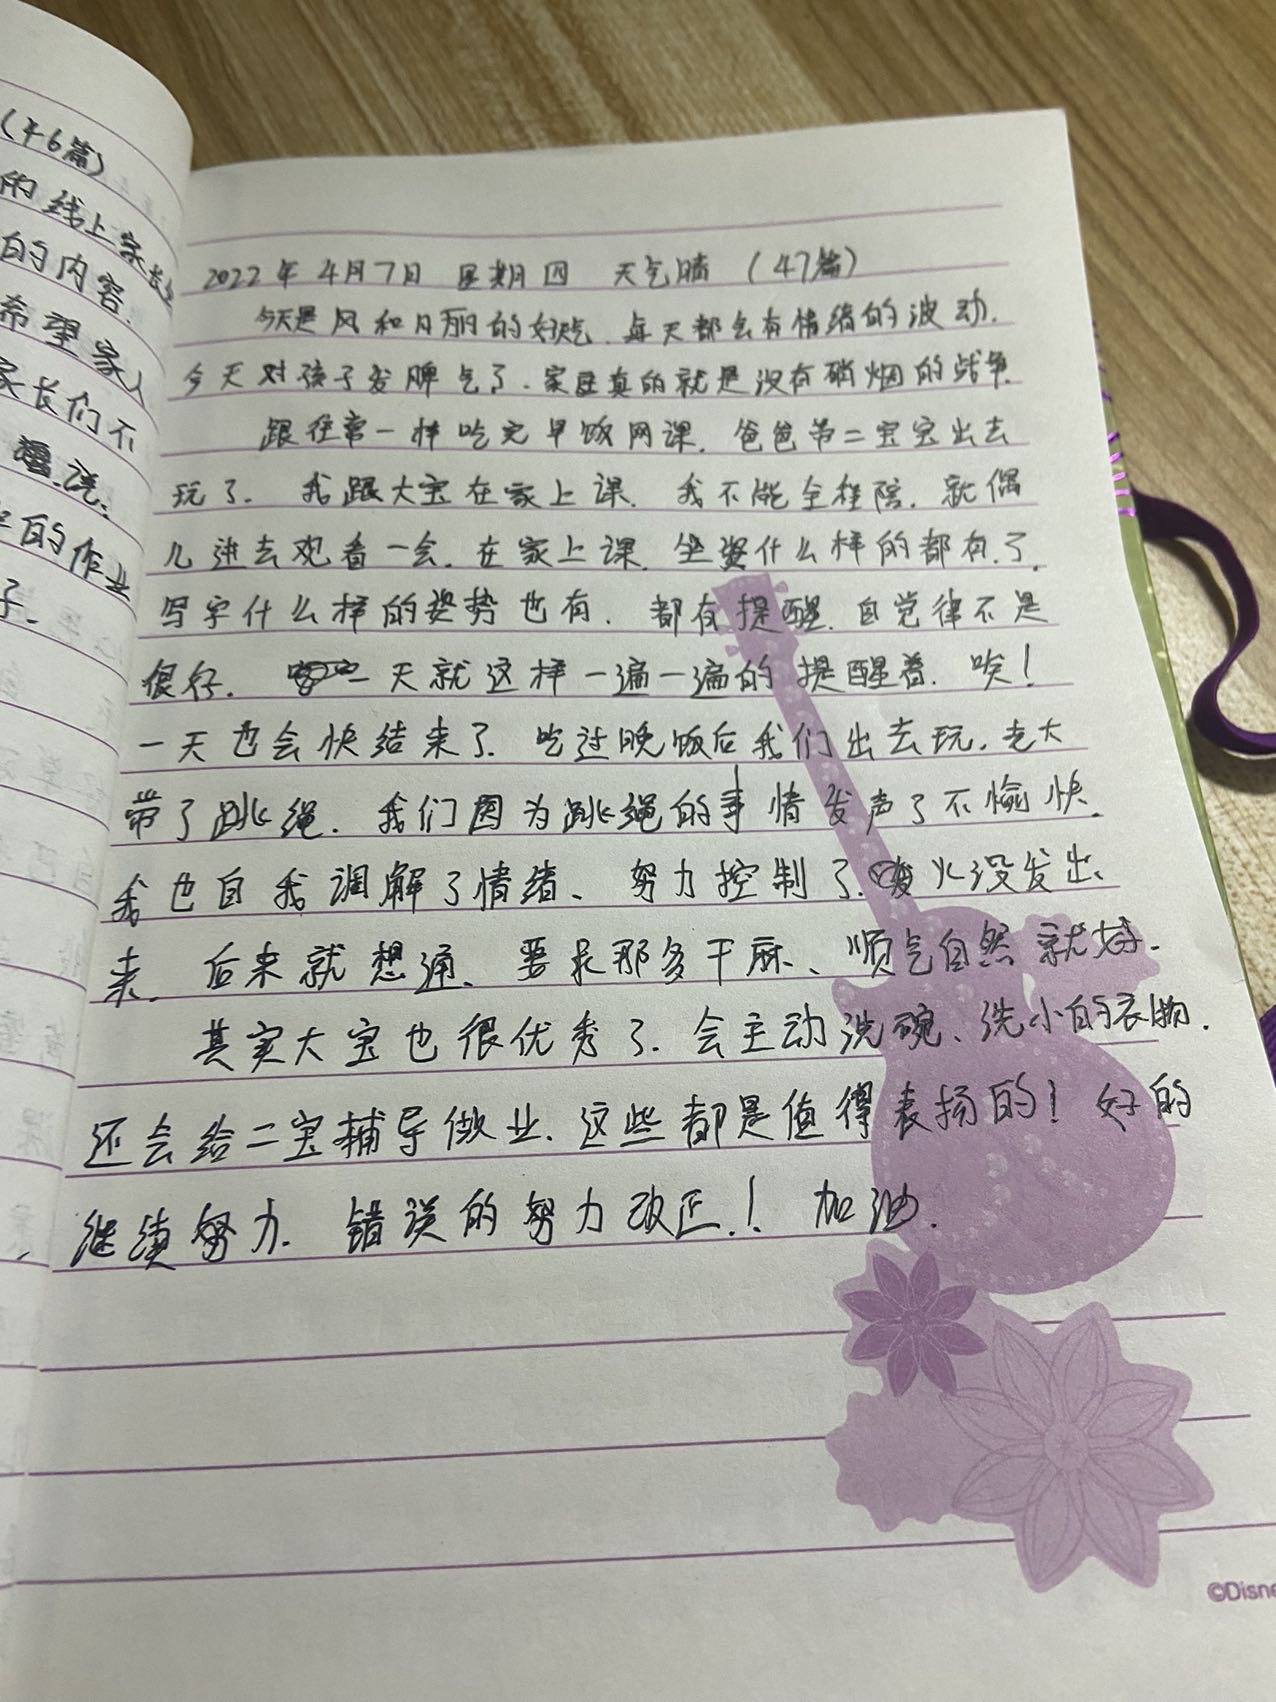 (46篇)
的线上家长
的内容.
希望家人
家长们不
说:
的作业
子.
2022年4月7日 星期四 天气晴 (47篇)
今天是风和日丽的好天气.每天都会有情绪的波动.
今天对孩子发脾气了.家庭真的就是没有硝烟的战争.
跟往常一样吃完早饭网课.爸爸带二宝宝出去
玩了.我跟大宝在家上课.我不能全程陪.就偶
儿进去观看一会.在家上课.坐姿什么样的都有了.
写字什么样的姿势也有.都有提醒.自觉律不是
很好.一天就这样一遍一遍的提醒着.唉!
一天也会快结束了.吃过晚饭后我们出去玩.老大
带了跳绳.我们因为跳绳的事情发声了不愉快.
我也自我调解了情绪、努力控制了.火没发出
来.后来就想通、要求那多干麻、顺气自然就好.
其实大宝也很优秀了.会主动洗碗、洗小的衣物.
还会给二宝辅导做业.这些都是值得表扬的!好的
继续努力.错误的努力改正.!加油.
©Disne